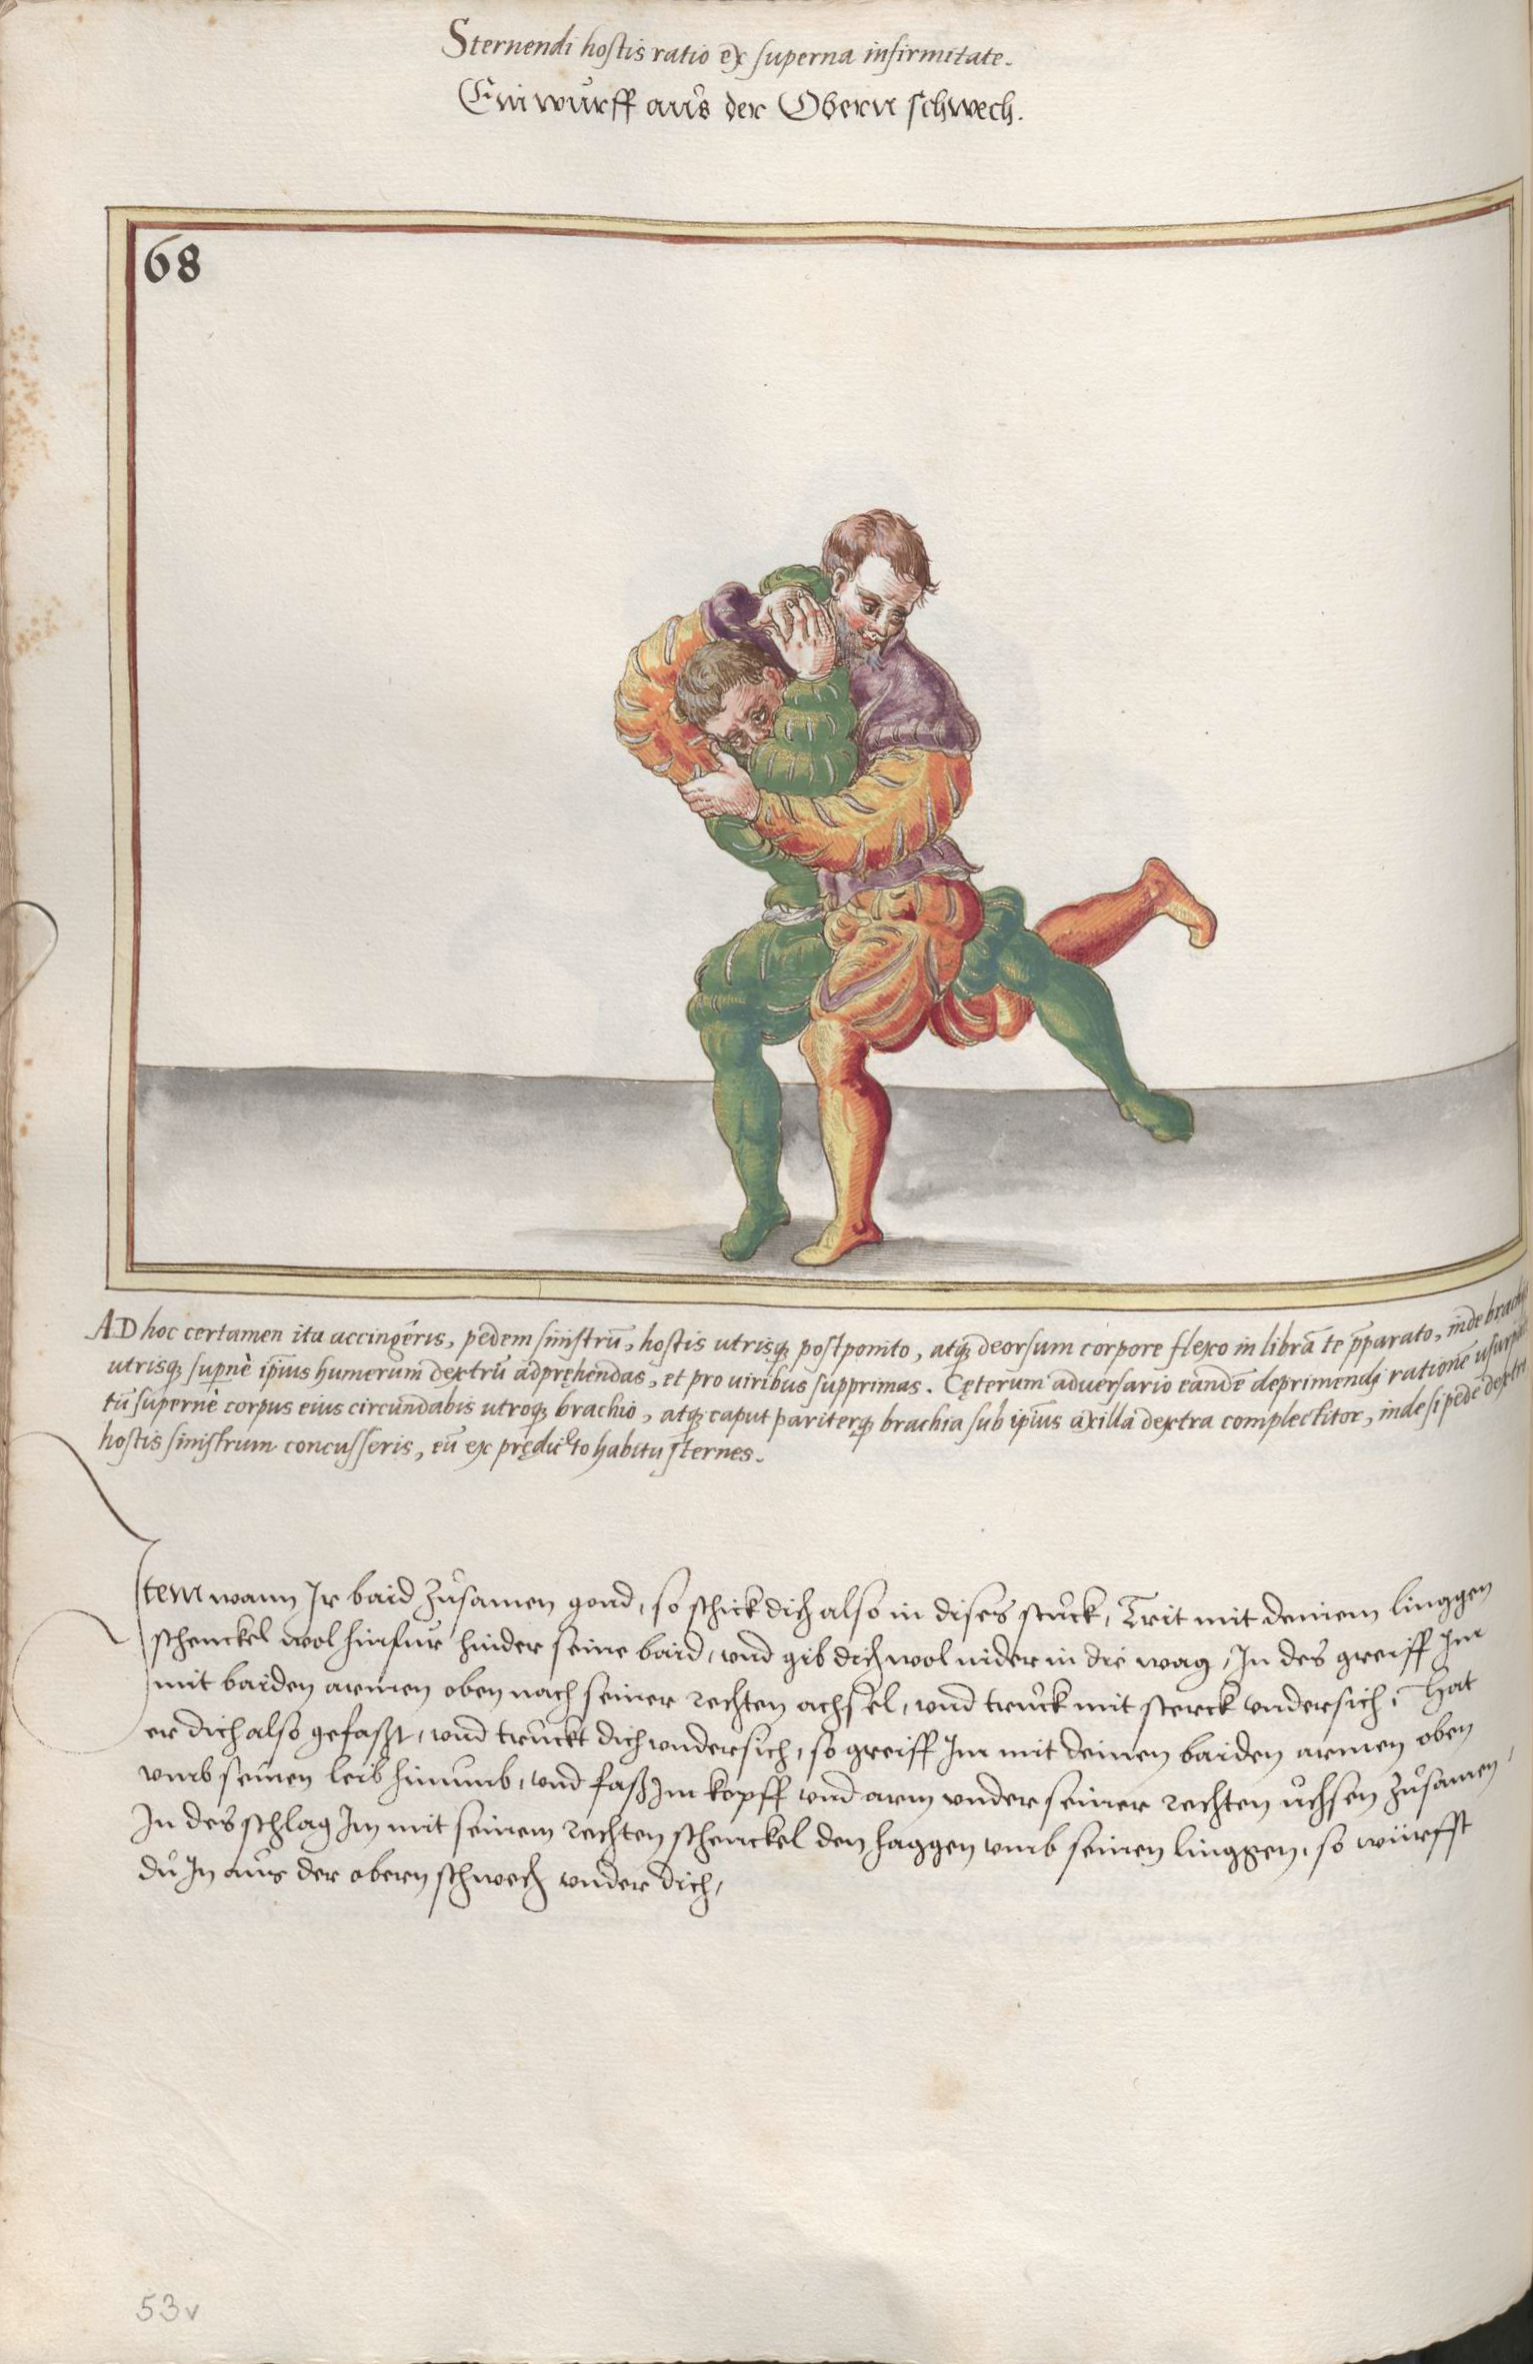 Sternendi hostis ratio ex superna infirmitate.
Ein wurff aus der Obern schwech.
68
AD hoc certamen ita accingêris, pedem sinistrū, hostis utrisq; postponito, atq; deorsum corpore flexo in librā te p̄parato, inde brachijs
utrisq; supnè ip̄ius humerum dextrū adpręhendas, et pro uiribus supprimas. Cęterum adversario eandē deprimendi rationē usurpāt
tū supernè corpus eius circundabis utroq; brachio, atq; caput pariterq; brachia sub ip̄ius axilla dextra complectitor, inde si pede dextro
hostis sinistrum concusseris, eū ex prędicto habitu sternes.
Item wann Ir baid zůsamen gond, so schick dich also in dises stůck, Trit mit deinem linggen
schenckel wol hinfur hinder seine baid, vnd gib dich wol nider in die wag, In des greiff Im
mit baiden armen oben nach seiner rechten achsel, vnd truck mit sterck vndersich, Hat
er dich also gefaßt, vnd truckt dich vndersich, so greiff Im mit deinen baiden armen oben
vmb seinen leib hinumb, vnd faß Im kopff vnd arm vnder seiner rechten ůchsen zůsamen,
In des schlag Im mit seinem rechten schenckel den haggen vmb seinen linggen, so würffst
dů In aus der obern schwech vnder dich,
53v